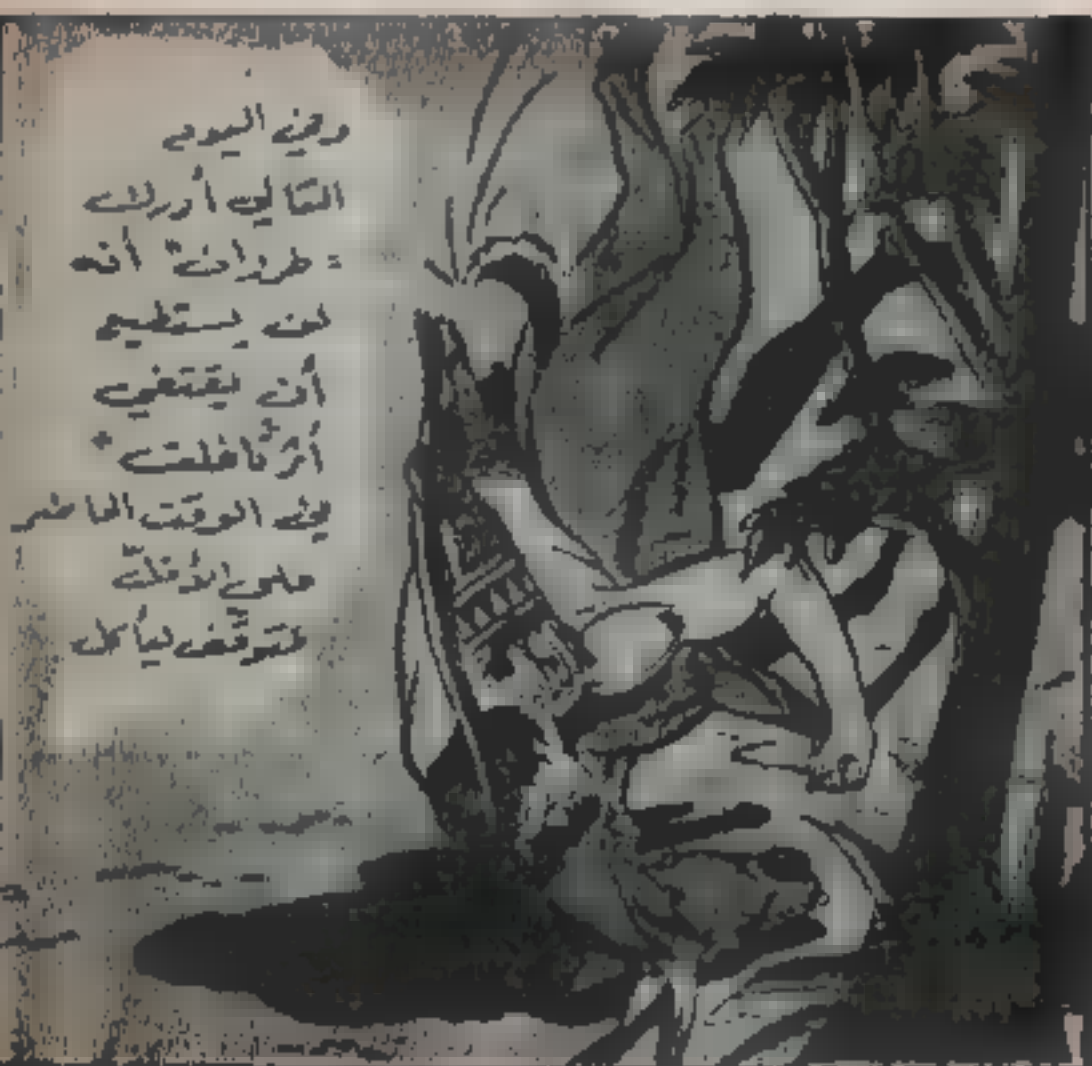 وفي اليوم
التالي أدرك
"طرزان" أنه
لن يستطيع
أن يقتفي
أثر نافلت.
في الوقت الحاضر
على الأقل
فتوقّف ليأكل